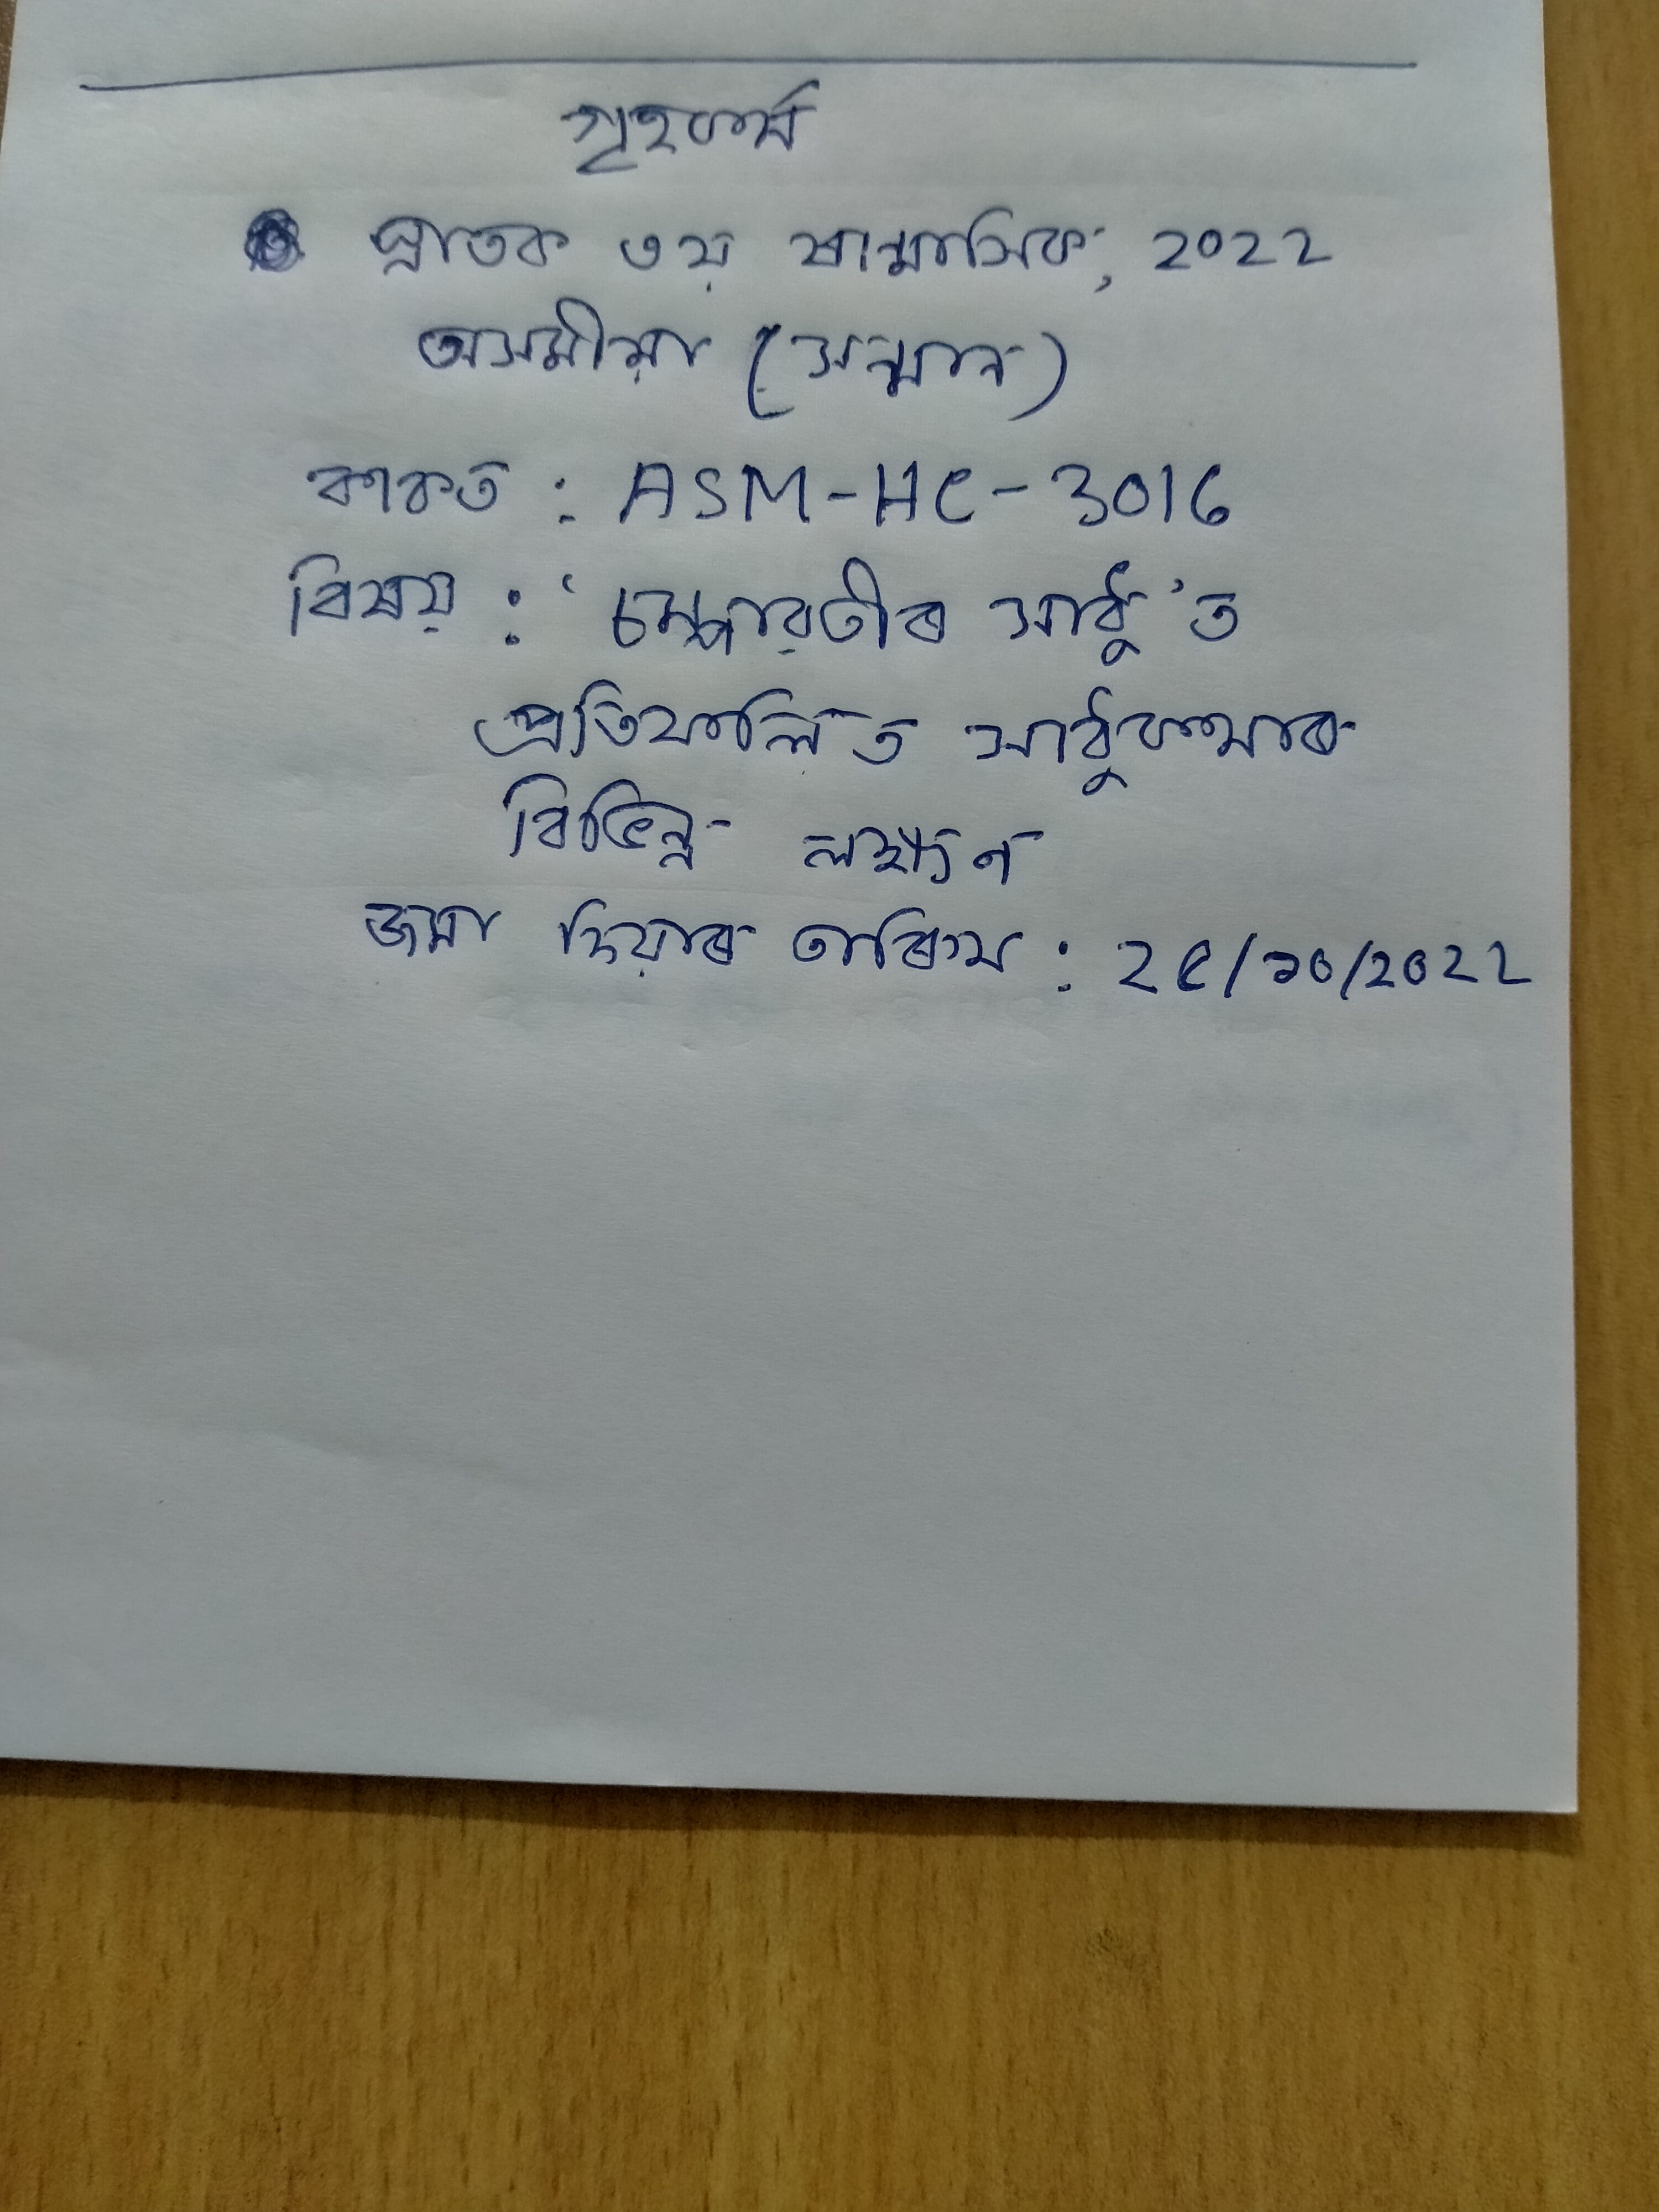 গৃহকৰ্ম
স্নাতক ৩য় ষান্মাসিক, 2022
অসমীয়া (সন্মান)
কাকত : ASM-HC-3016
বিষয় : 'চম্পাৱতীৰ সাধু'ত
প্ৰতিফলিত সাধুকথাৰ
বিভিন্ন লক্ষণ
জমা দিয়াৰ তাৰিখ : 2৫/১0/2022